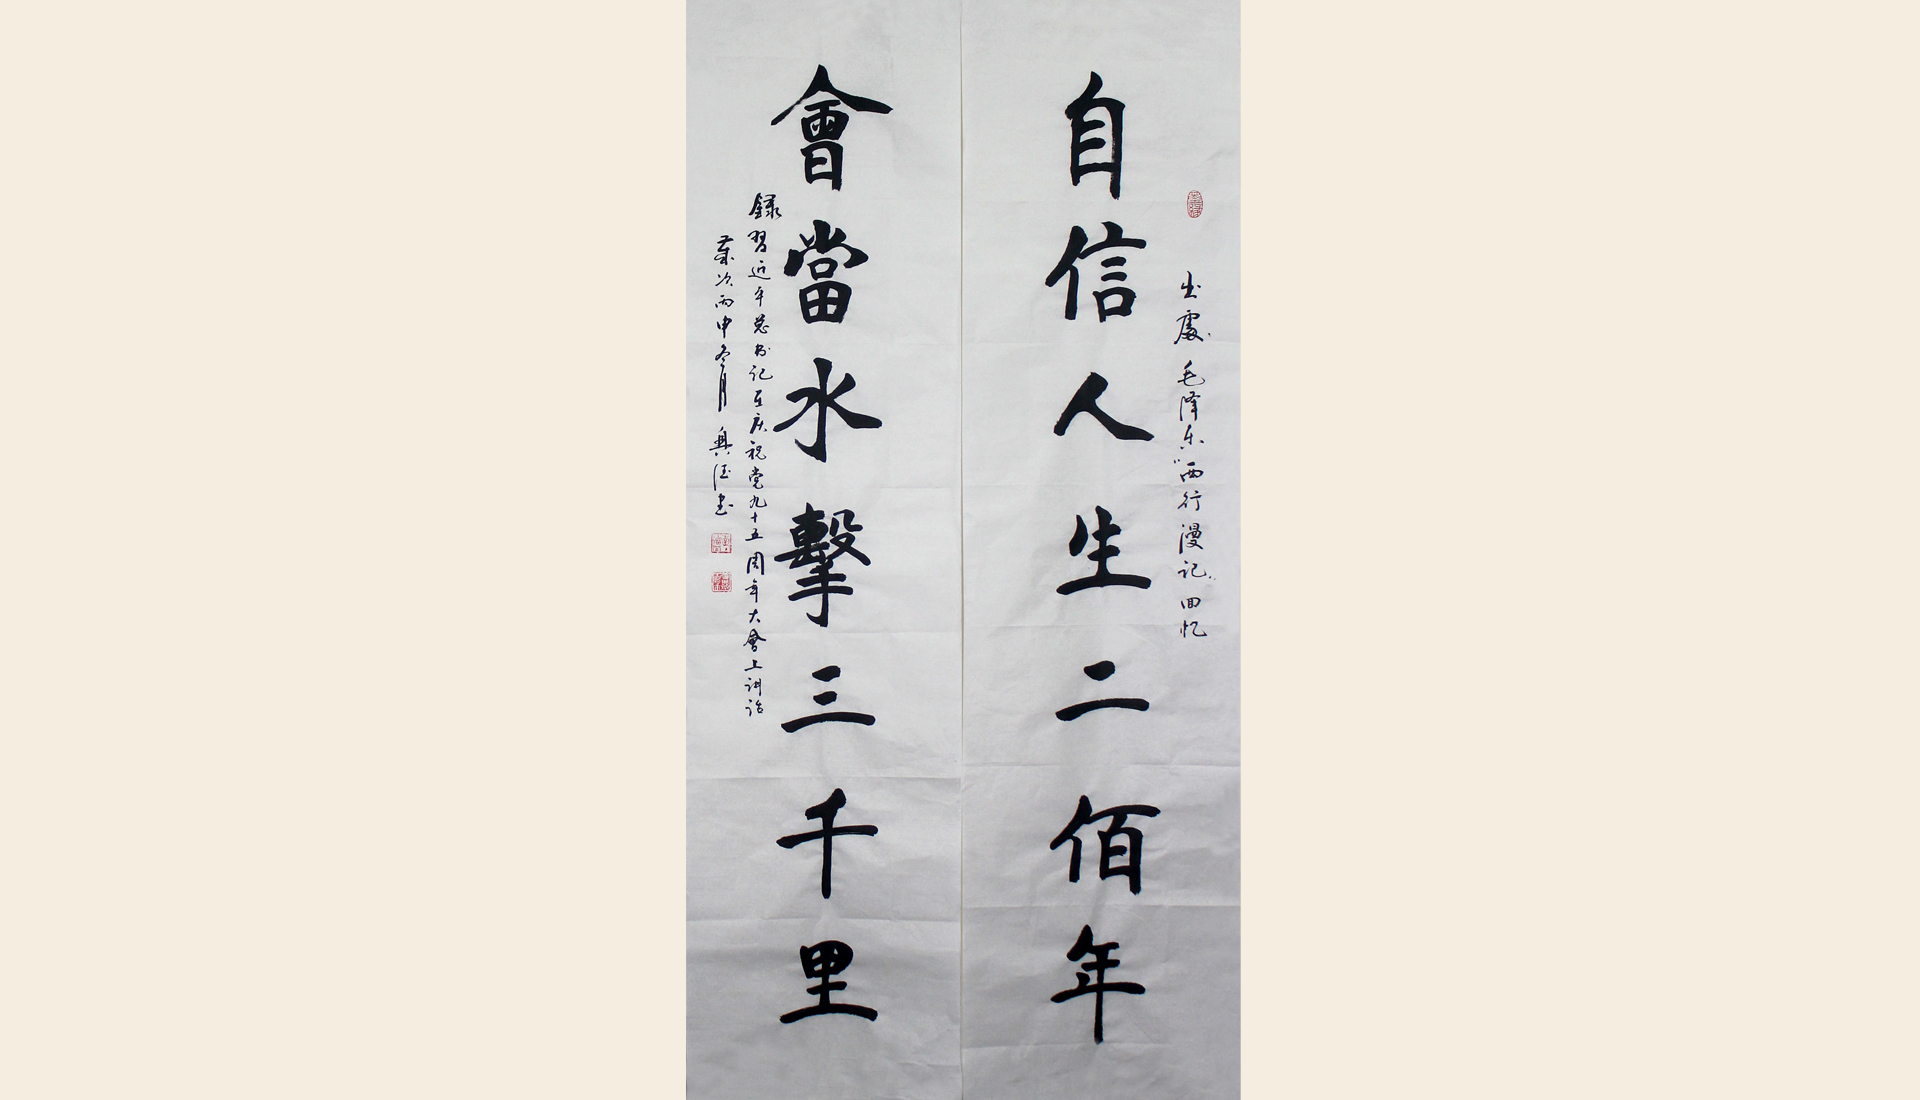 出處毛泽东"西行漫记"回忆
自信人生二佰年
會當水擊三千里
録習近平总书记在庆祝党九十五周年大會上讲话
歲次丙申冬月興 书